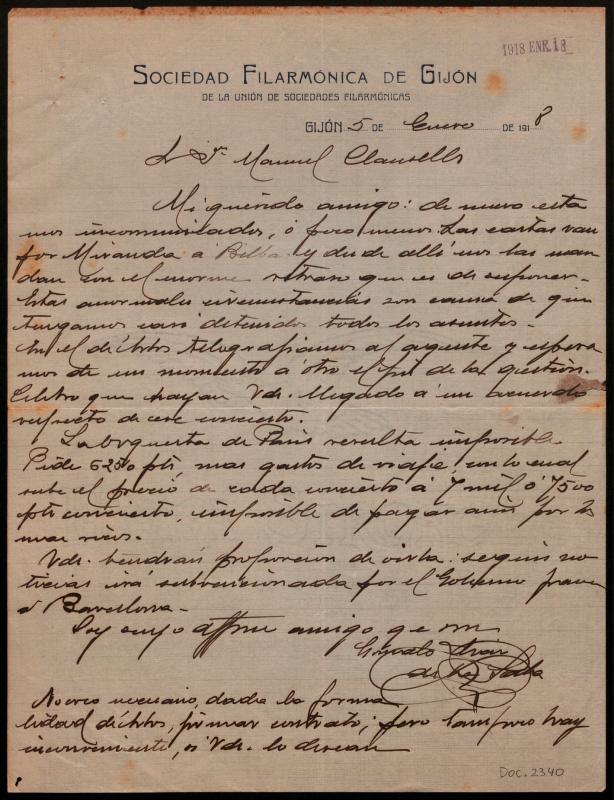 1918 ENR. 18
SOCIEDAD FILARMÓNICA DE GIJÓN
DE LA UNIÓN DE SOCIEDADES FILARMÓNICAS
GIJÓN 5 DE Enero DE 1918
Manuel Clausells
Mi querido amigo: de nuevo esta
mos incomunicados, ó poco menos. Las cartas van
por Miranda á Bilbao y desde allí nos las man
dan con el enorme retraso que es de suponer.
Estas anormales circunstancias son causa de que
tengamos casi detenidos todos los asuntos.
En el de telegrafiamos al agente y espera
mos de un momento á otro el fin de la gestión.
Celebro que hayan Vds. llegado á un acuerdo
respecto de ese concierto.
La orquesta de Paris resulta imposible
Pide 6250 pts, mas gastos de viaje, con lo cual
sube el precio de cada concierto á 7 mil ó 7500
pts concierto, imposible de pagar aun por los
mas ricos.
Vds. tendrán proporcion de oirla: segun no
ticias irá subvencionada por el Gobierno frances
á Barcelona.
Soy suyo affmo amigo q e s m
Gonzalo
de la
No creo necesario, dada la forma
lidad de firmar contrato; pero tampoco hay
inconveniente, si Vds. lo desean
Doc. 2340